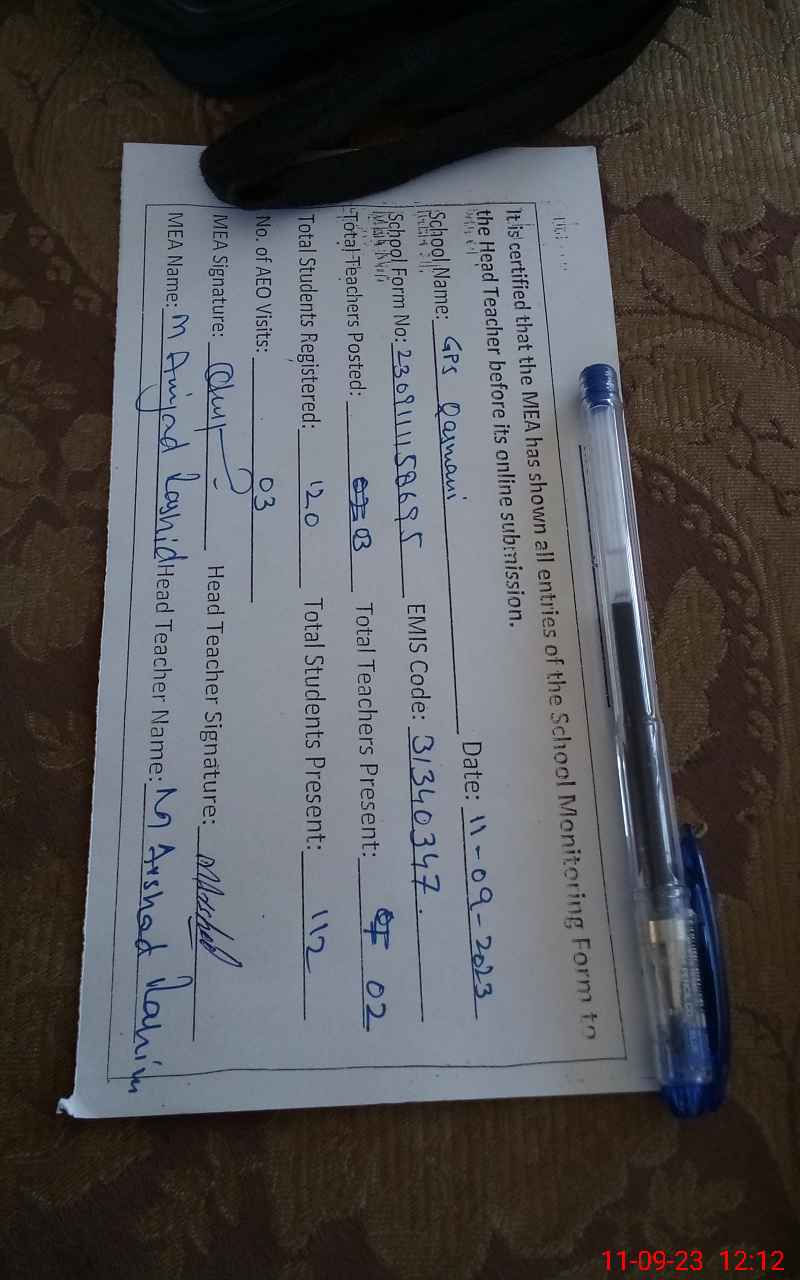 It is certified that the MEA has shown all entries of the School Monitoring Form to
the Head Teacher before its online submission.
School Name: GPS Qamani Date: 11-09-2023
School Form No: 230911158695 EMIS Code: 31340347.
Total Teachers Posted: 03 Total Teachers Present: 02
Total Students Registered: 120 Total Students Present: 112
No. of AEO Visits: 03
MEA Signature: Head Teacher Signature:
MEA Name: M Amjad Rashid Head Teacher Name: M Arshad Rahim
11-09-23 12:12